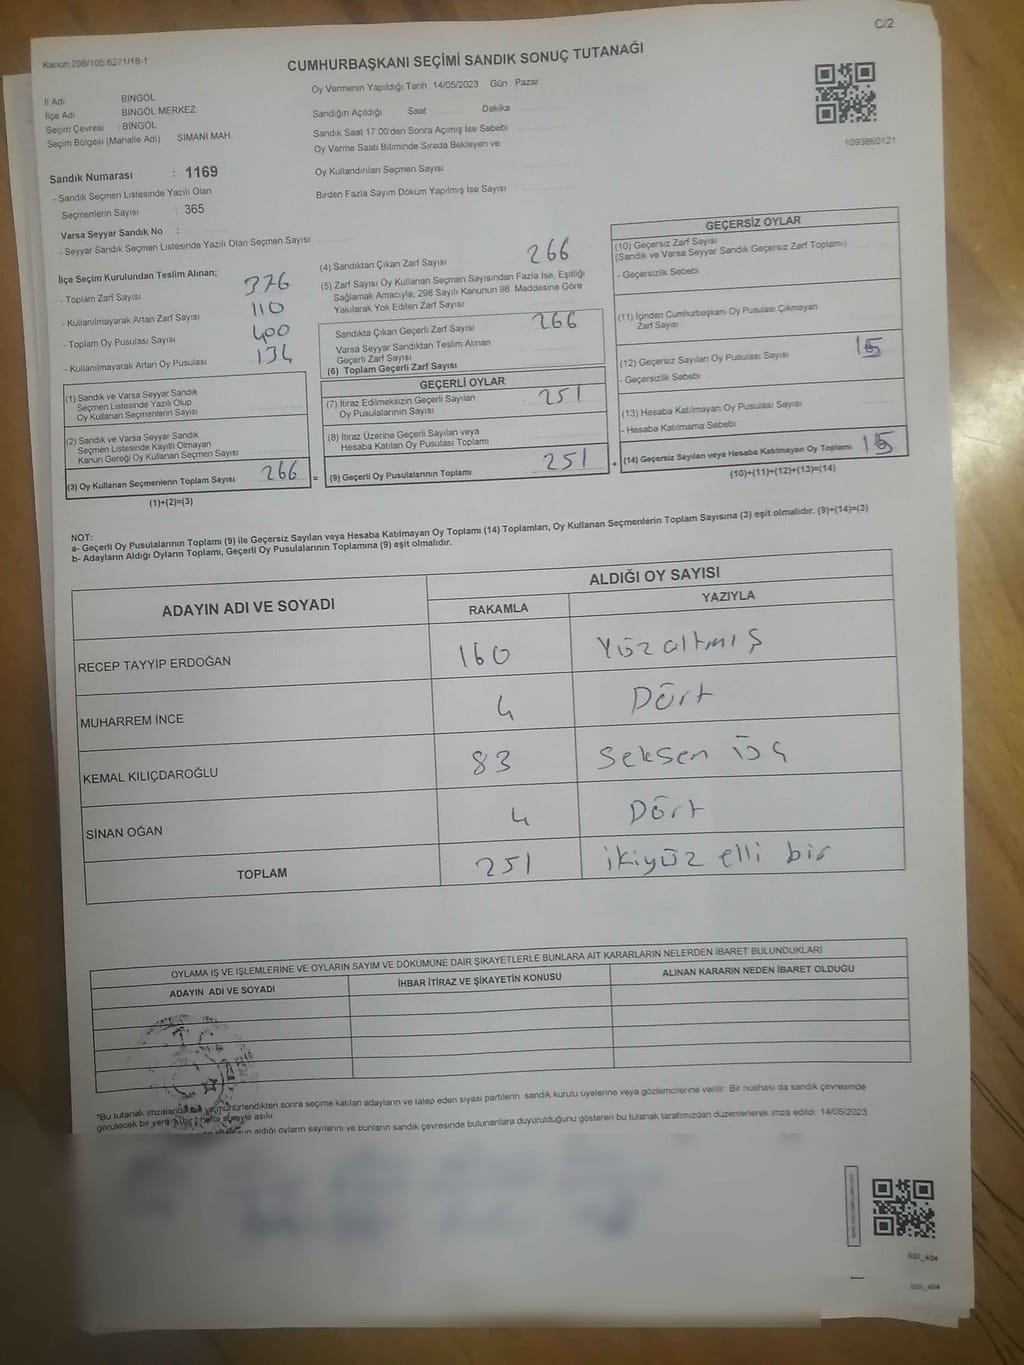 C/2
Kanun:298/105,6271/18-1
CUMHURBAŞKANI SEÇİMİ SANDIK SONUÇ TUTANAĞI
İl Adı BİNGÖL
İlçe Adı BİNGÖL MERKEZ
Seçim Çevresi : BİNGÖL
Seçim Bölgesi (Mahalle Adı) SİMANİ MAH.
Oy Vermenin Yapıldığı Tarih 14/05/2023 Gün Pazar
Sandığın Açıldığı Saat Dakika
Sandık Saat 17.00'den Sonra Açımış İse Sebebi
Oy Verme Saati Bitiminde Sırada Bekleyen ve
Oy Kullandırılan Seçmen Sayısı
Birden Fazla Sayım Döküm Yapılmış İse Sayısı
1093860121
Sandık Numarası : 1169
- Sandık Seçmen Listesinde Yazılı Olan
Seçmenlerin Sayısı : 365
Varsa Seyyar Sandık No :
- Seyyar Sandık Seçmen Listesinde Yazılı Olan Seçmen Sayısı
İlçe Seçim Kurulundan Teslim Alınan;
- Toplam Zarf Sayısı 376
- Kullanılmayarak Artan Zarf Sayısı 110
- Toplam Oy Pusulası Sayısı 400
- Kullanılmayarak Artan Oy Pusulası 134
(1) Sandık ve Varsa Seyyar Sandık
Seçmen Listesinde Yazılı Olup
Oy Kullanan Seçmenlerin Sayısı
(2) Sandık ve Varsa Seyyar Sandık
Seçmen Listesinde Kayıtlı Olmayan
Kanun Gereği Oy Kullanan Seçmen Sayısı
(3) Oy Kullanan Seçmenlerin Toplam Sayısı 266 =
(1)+(2)=(3)
(4) Sandıktan Çıkan Zarf Sayısı 266
(5) Zarf Sayısı Oy Kullanan Seçmen Sayısından Fazla İse, Eşitliği
Sağlamak Amacıyla, 298 Sayılı Kanunun 98. Maddesine Göre
Yakılarak Yok Edilen Zarf Sayısı
Sandıkta Çıkan Geçerli Zarf Sayısı 266
Varsa Seyyar Sandıktan Teslim Alınan
Geçerli Zarf Sayısı
(6) Toplam Geçerli Zarf Sayısı
GEÇERLİ OYLAR
(7) İtiraz Edilmeksizin Geçerli Sayılan
Oy Pusulalarının Sayısı : 251
(8) İtiraz Üzerine Geçerli Sayılan veya
Hesaba Katılan Oy Pusulası Toplamı
(9) Geçerli Oy Pusulalarının Toplamı 251 +
GEÇERSİZ OYLAR
(10) Geçersiz Zarf Sayısı
(Sandık ve Varsa Seyyar Sandık Geçersiz Zarf Toplamı)
- Geçersizlik Sebebi
(11) İçinden Cumhurbaşkanı Oy Pusulası Çıkmayan
Zarf Sayısı
(12) Geçersiz Sayılan Oy Pusulası Sayısı 15
- Geçersizlik Sebebi
(13) Hesaba Katılmayan Oy Pusulası Sayısı
- Hesaba Katılmama Sebebi
(14) Geçersiz Sayılan veya Hesaba Katılmayan Oy Toplamı 15
(10)+(11)+(12)+(13)=(14)
NOT:
a- Geçerli Oy Pusulalarının Toplamı (9) ile Geçersiz Sayılan veya Hesaba Katılmayan Oy Toplamı (14) Toplamları, Oy Kullanan Seçmenlerin Toplam Sayısına (3) eşit olmalıdır. (9)+(14)=(3)
b- Adayların Aldığı Oyların Toplamı, Geçerli Oy Pusulalarının Toplamına (9) eşit olmalıdır.
ADAYIN ADI VE SOYADI
ALDIĞI OY SAYISI
RAKAMLA YAZIYLA
RECEP TAYYİP ERDOĞAN 160 Yüz altmış
MUHARREM İNCE 4 Dört
KEMAL KILIÇDAROĞLU 83 Seksen üç
SİNAN OĞAN 4 Dört
TOPLAM 251 ikiyüz elli bir
OYLAMA İŞ VE İŞLEMLERİNE VE OYLARIN SAYIM VE DÖKÜMÜNE DAİR ŞİKAYETLERLE BUNLARA AİT KARARLARIN NELERDEN İBARET BULUNDUKLARI
ADAYIN ADI VE SOYADI İHBAR İTİRAZ VE ŞİKAYETİN KONUSU ALINAN KARARIN NEDEN İBARET OLDUĞU
*Bu tutanak mühürlendikten sonra seçime katılan adayların ve talep eden siyasi partilerin sandık kurulu üyelerine veya gözlemcilerine verilir. Bir nüshası da sandık çevresinde
görülecek bir yere hafta süreyle asılır.
aldığı oyların sayılarını ve bunların sandık çevresinde bulunanlara duyurulduğunu gösteren bu tutanak tarafımızdan düzenlenerek imza edildi. 14/05/2023
SSI_404
SSI_404